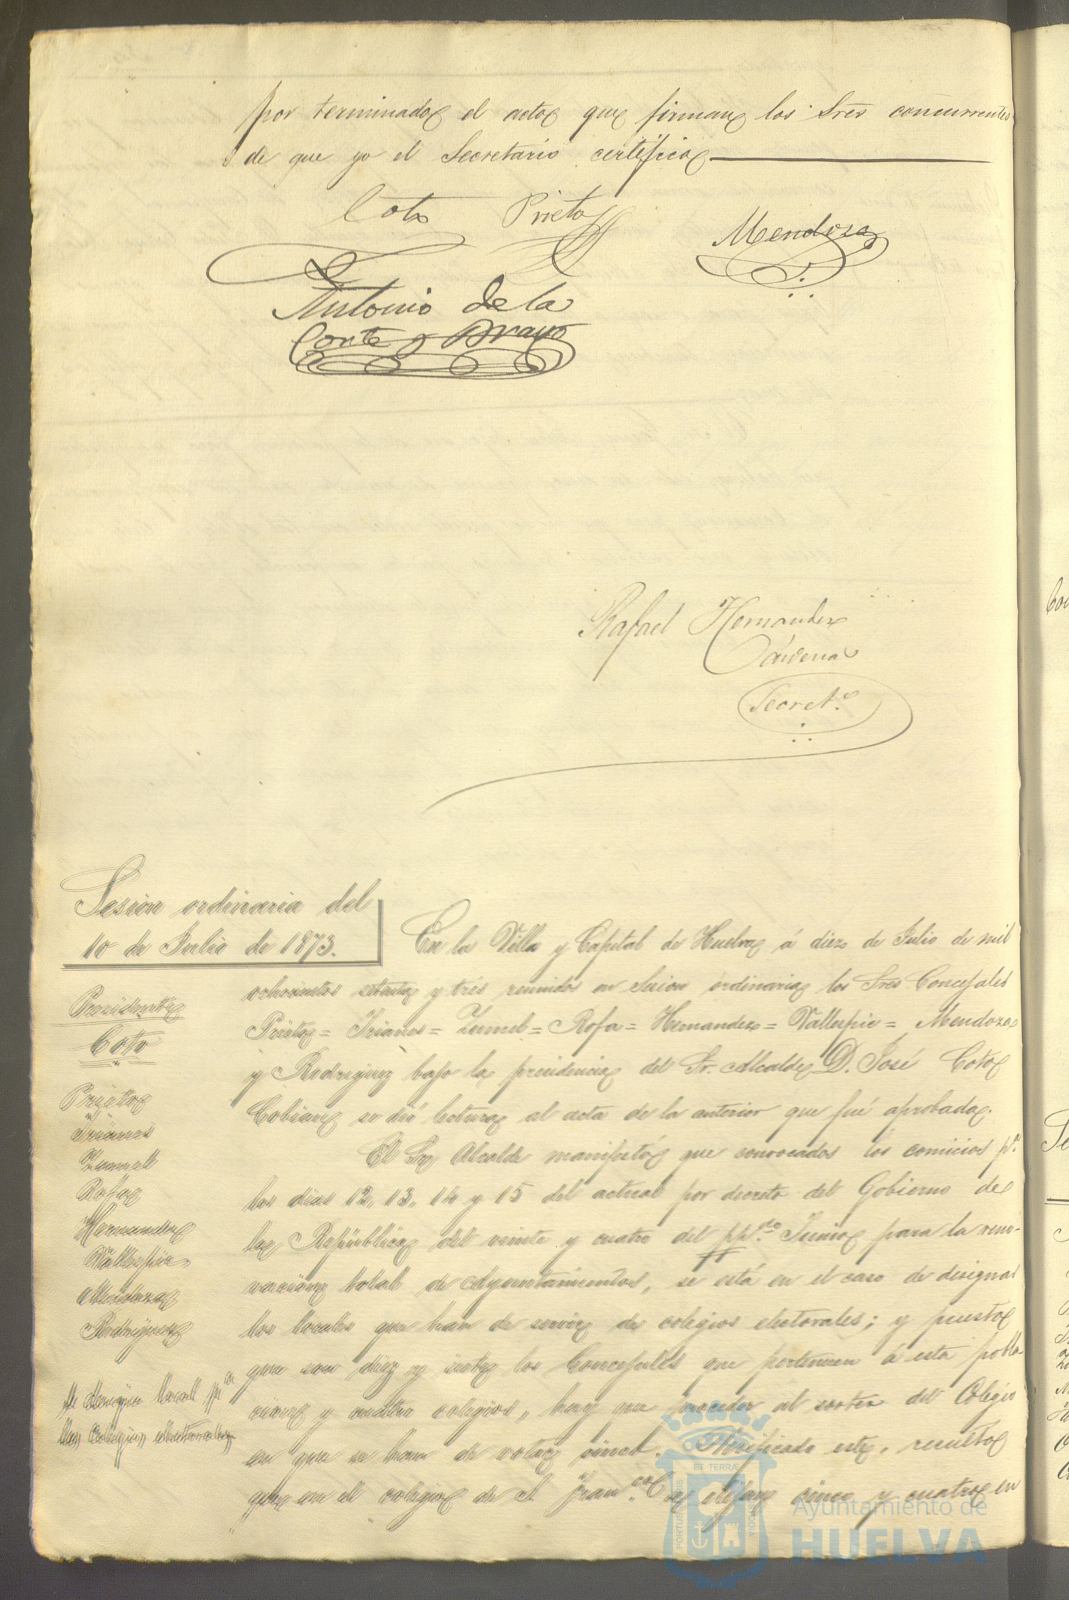 por terminado el acto que firman los Sres concurrentes
de que yo el Secretario certifico
Coto Prieto
Mendoza
Antonio de la
Corte y Bravo
Rafael Hernandez
Cárdenas
Secret.º
Sesion ordinaria del
10 de Julio de 1873.
Presidente
Coto
Prieto
Trianes
Zunel
Rofa
Hernandez
Vallespin
Mendoza
Rodriguez
En la Villa y Capital de Huelva á diez de Julio de mil
ochocientos setenta y trés reunidos en Sesion órdinaria los Sres Concejales
Prieto = Trianes = Zunel = Rofa = Hernandez = Vallespin = Mendoza
y Rodriguez bajo la presidencia del Sr. Alcalde D. José Coto
Cobian, se dió lectura al acta de la anterior que fué aprobada.
El Sr Alcalde manifestó que convocados los comicios p.ª
los dias 12, 13, 14 y 15 del actual por decreto del Gobierno de
la República del veinte y cuatro del pp.do Junio para la reno-
vacion total de Ayuntamientos, se está en el caso de designar
los locales que han de servir de colegios electorales; y puesto
que son diez y siete los Concejales que pertenecen á esta pobla
cion y cuatro colegios, hay que proceder al sorteo del Colegio
en que se han de votar cinco. Verificado este, resultó
que en el colegio de S. Fran.co se elijan cinco y cuatro en
Se designa local p.ª
los Colegios electorales
Ayuntamiento de
HUELVA